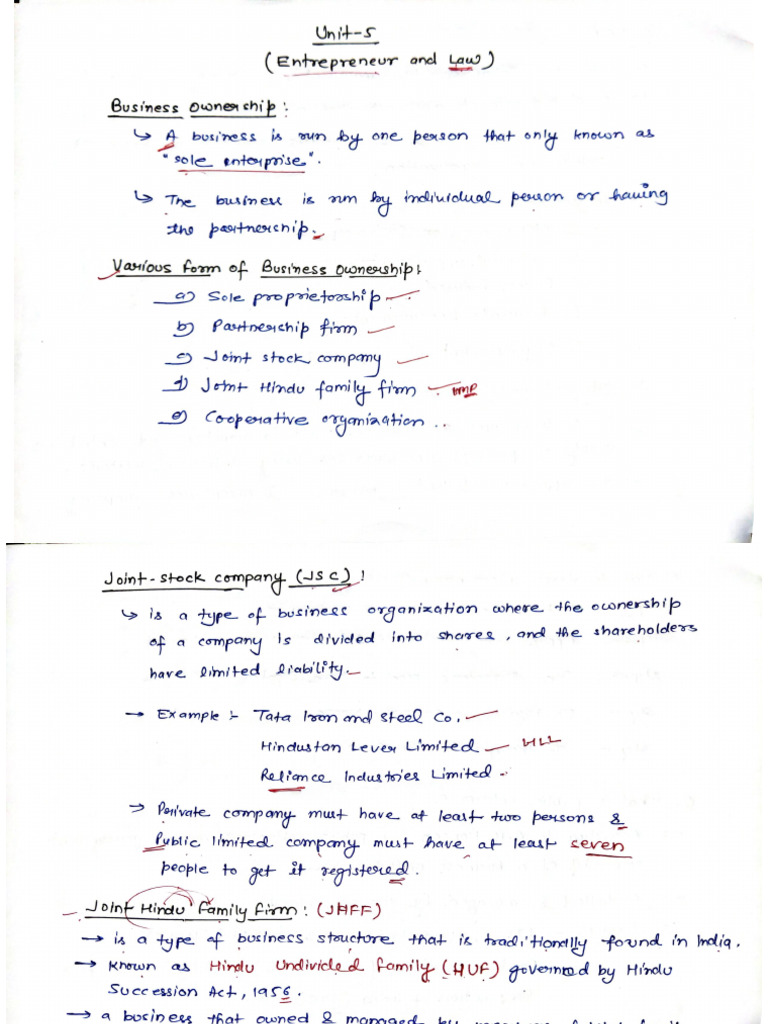 Unit-5
(Entrepreneur and Law)
Business Ownership:
↳ A business is run by one person that only known as
"sole enterprise".
↳ The business is run by individual person or having
the partnership.
Various form of Business Ownership:
a) Sole proprietorship
b) Partnership firm
c) Joint stock company
d) Joint Hindu family firm IMP
e) Cooperative organization..
Joint-stock company (JSC):
↳ is a type of business organization where the ownership
of a company is divided into shares, and the shareholders
have limited liability.
→ Example :- Tata Iron and Steel Co.
Hindustan Lever Limited HLL
Reliance Industries Limited.
→ Private company must have at least two persons &
Public limited company must have at least seven
people to get it registered.
Joint Hindu family firm: (JHFF)
→ is a type of business structure that is traditionally found in India.
→ known as Hindu Undivided family (HUF) governed by Hindu
Succession Act, 1956.
→ a business that owned & managed by